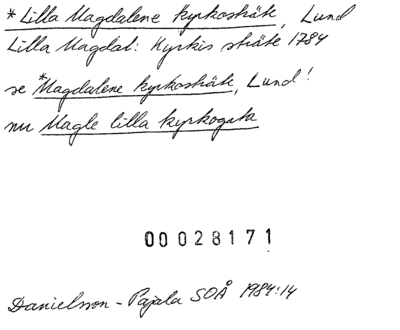 *Lilla Magdalene kyrkostråk, Lund
Lilla Magdal: Kyrkis stråke 1784
se *Magdalene kyrkostråk, Lund!
nu Magle lilla kyrkogata
00028171
Danielsson - Pajala SOÅ 1984:14